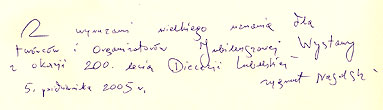 Z wyrazami wielkiego uznania dla
twórców i organizatorów Jubileuszowej Wystawy
z okazji 200. lecia Diecezji Lubelskiej
5. października 2005 r. Zygmunt